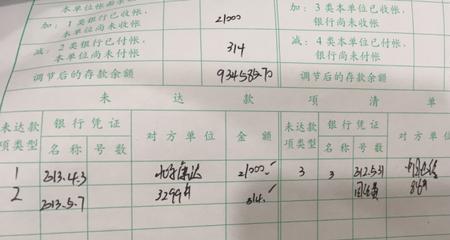 加：1 类银行已收帐，
本单位尚未收帐
21000
加：3 类本单位已收帐，
银行尚未收帐
减：2 类银行已付帐，
本单位尚未付帐
314
减：4 类本单位已付帐，
银行尚未付帐
调节后的存款余额
934585.70
调节后的存款余额
未 达 款 项 清 单
未达款项类型 银行凭证 名称 号数 对方单位 金额 未达款项类型 银行凭证 名称 号数 对方单位
1 2013.4.3 21000. 3 3
2 2013.5.7 314.